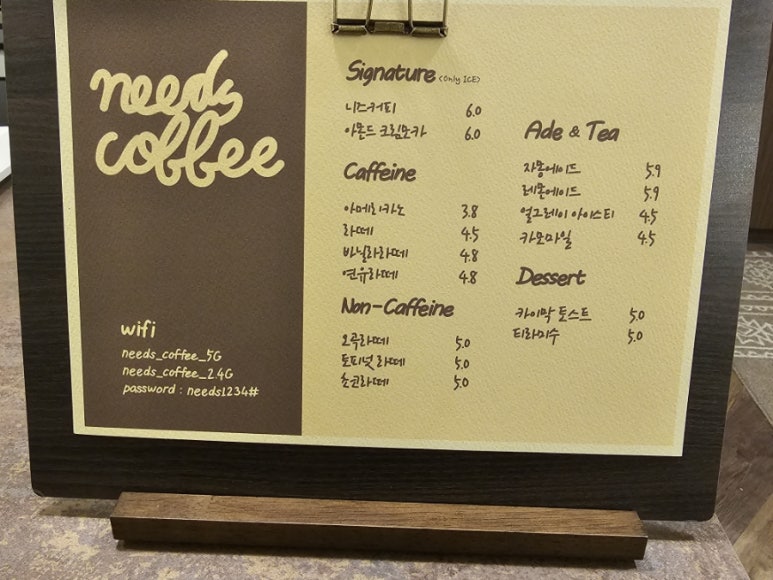 needs
coffee
wifi
needs_coffee_5G
needs_coffee_2.4G
password : needs1234#
Signature (Only ICE)
니즈커피 6.0
아몬드 크림모카 6.0
Caffeine
아메리카노 3.8
라떼 4.5
바닐라라떼 4.8
연유라떼 4.8
Non-Caffeine
오곡라떼 5.0
토피넛 라떼 5.0
초코라떼 5.0
Ade & Tea
자몽에이드 5.9
레몬에이드 5.9
얼그레이 아이스티 4.5
카모마일 4.5
Dessert
카이막 토스트 5.0
티라미수 5.0